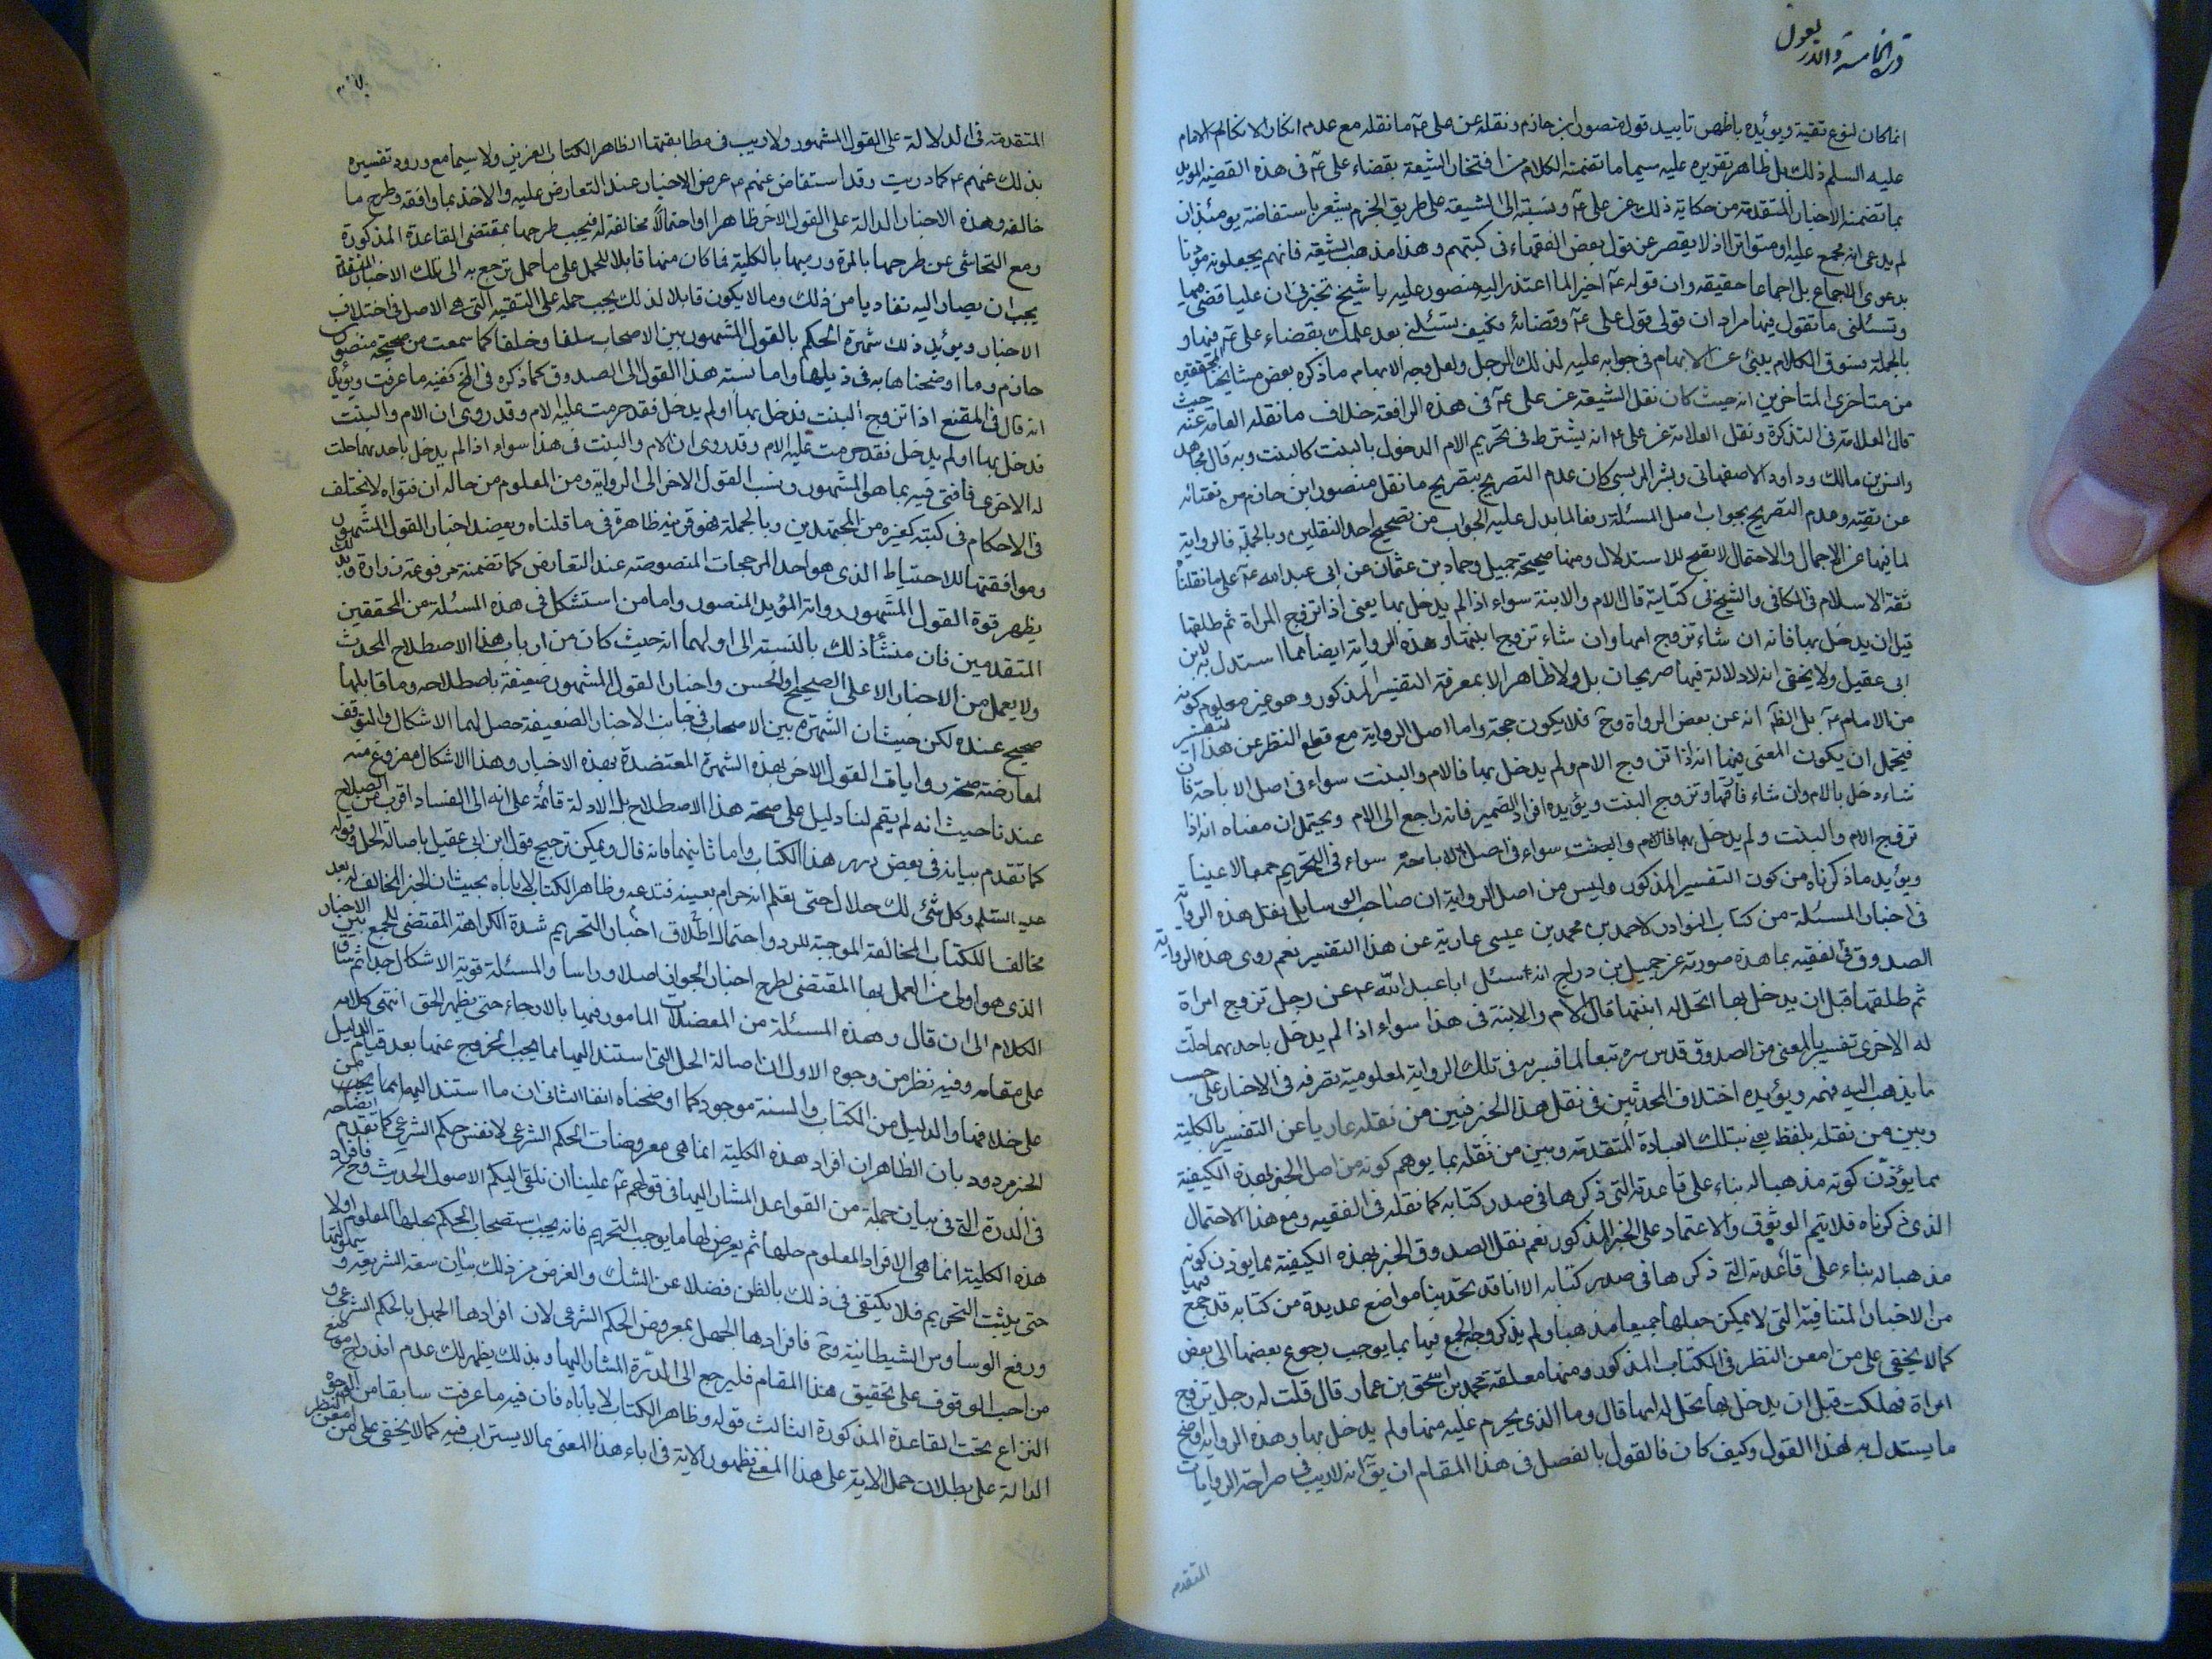 انما كان لنوع تقية ويؤيده باظهر تاييد قوله منصور ابن حازم ونقله عن علي ع ما نقله مع عدم انكار الامام
عليه السلم ذلك بل ظاهر تقريره عليه سيما ما تضمنه الكلام من افتخار الشيعة بقضاء علي ع في هذه القضية المؤيد
بما تضمنه الاخبار المتقدمة من حكاية ذلك عن علي ع ونسبته الى الشيعة على طريق الجزم يشعر باستفاضة يومئذ ان
لم يدعى انه مجمع عليه او متواترا اذ لا يقصر عن قول بعض الفقهاء في كتبهم وهذا مذهب الشيعة فانهم يجعلونه مؤذنا
بدعوى الاجماع بل اجماعا حقيقه وان قوله ع اخيرا لما اعتذر اليه منصور عليه يا شيخ تخبرني ان عليا قضى فيها
وتسئلني ما تقول فيها مراد ان قولي قول علي ع وقضائه فكيف تسئلني بعد علمك بقضاء علي ع فيها و
بالجملة فسوق الكلام ينبئ عن الابهام في جوابه عليه لذلك الرجل ولعل وجه الابهام ما ذكره بعض مشايخنا المحققين
من متاخرى المتاخرين انه حيث كان نقل الشيعة عن علي ع في هذه الواقعة خلاف ما نقله العامة عنه حيث
قال العلامة في التذكرة ونقل العلامة عن علي ع انه يشترط في تحريم الام الدخول بالبنت كالبنت وبه قال مجاهد
وانس بن مالك وداود الاصفهاني وبشر المريسي كان عدم التصريح بتصريح ما نقل منصور ابن حازم من
عن تقية وعدم التصريح بجواب اصل المسئلة رفعا لما يدل عليه الجواب من تصحيح احد النقلين وبالجملة فالرواية
لما فيها من الاجمال والاحتمال لا تصح للاستدلال ومنها صحيحة جميل وحماد بن عثمان عن ابي عبد الله ع على ما نقلناه
ثقة الاسلام في الكافي والشيخ في كتابيه قال الام والابنة سواء اذا لم يدخل بها يعني اذا تزوج المراة ثم طلقها
قبل ان يدخل بها فانه ان شاء تزوج امها وان شاء تزوج ابنتها وهذه الرواية ايضا مما استدل به لابن
ابي عقيل ولا يخفى انه لا دلالة فيها صريحا بل ولا ظاهرا الا بمعرفة التفسير المذكور وهو غير معلوم كونه
من الامام ع بل الظ انه عن بعض الرواة وح فلا يكون حجة واما اصل الرواية مع قطع النظر عن هذا التفسير
فيحتمل ان يكون المعنى فيها انه اذا تزوج الام ولم يدخل بها فالام والبنت سواء في اصل الاباحة فان
شاء دخل بالام وان شاء فارقها وتزوج البنت ويؤيده افراد الضمير فانه راجع الى الام ويحتمل ان معناه انه اذا
تزوج الام والبنت ولم يدخل بها فالام والبنت سواء في اصل الاباحة سواء في التحريم جمعا لا عينا
ويؤيد ما ذكرناه من كون التفسير المذكور وليس من اصل الرواية ان صاحب الوسايل نقل هذه الرواية
في اخبار المسئلة من كتاب النوادر لاحمد بن محمد بن عيسى عارية عن هذا التفسير نعم روى هذه الرواية
الصدوق في الفقيه بما هذه صورته عن جميل بن دراج انه سئل ابا عبد الله ع عن رجل تزوج امراة
ثم طلقها قبل ان يدخل بها اتحل له ابنتها قال الام والابنة في هذا سواء اذا لم يدخل باحديهما حلت
له الاخرى تفسيرا بالمعنى من الصدوق قدس سره تبعا لما فسر به في تلك الرواية لمعلومية تصرفه في الاخبار على حسب
ما يذهب اليه فهمه ويؤيده اختلاف المحدثين في نقل هذا الخبر فبين من نقله عاريا عن التفسير بالكلية
وبين من نقله بلفظ يعني بتلك العبادة المتقدمة وبين من نقله بما يوهم كونه من اصل الخبر بهذه الكيفية
مما يؤذن كونه مذهبا له بناء على قاعدته التي ذكرها في صدر كتابه كما نقله في الفقيه ومع هذا الاحتمال
الذى ذكرناه فلا يتم الوثوق والاعتماد على الخبر المذكور نعم نقل الصدوق الخبر بهذه الكيفية مما يوذن كونه
مذهبا له بناء على قاعدته التي ذكرها في صدر كتابه الا انا قد تحدينا مواضع عديدة من كتابه قد جمع فيها
من الاخبار المتنافية التي لا يمكن جعلها جميعا مذهبا ولم يذكر وجه الجمع فيها بما يوجب رجوع بعضها الى بعض
كما لا يخفى على من امعن النظر في الكتاب المذكور ومنها معلقة محمد بن اسحق بن عمار قال قلت له رجل تزوج
امراة فهلكت قبل ان يدخل بها تحل له امها قال وما الذى يحرم عليه منها ولم يدخل بها وهذه الرواية اوضح
ما يستدل به لهذا القول وكيف كان فالقول بالفصل في هذا المقام ان يق انه لا ريب في صراحة الروايات
المتقدم
المتقدمة في الدلالة على القول المشهور ولا ريب في مطابقتها لظاهر الكتاب العزيز ولا سيما مع ورود تفسيره
بذلك عنهم ع كما دريت وقد استفاض عنهم ع عرض الاخبار عند التعارض عليه والاخذ بما وافقه وطرح ما
خالفه وهذه الاخبار الدالة على القول الاخر ظاهرا او احتمالا مخالفة له فيجب طرحها بمقتضى القاعدة المذكورة
ومع التحاشى عن طرحها بالمرة ورميها بالكلية فما كان منها قابلا للحمل على ما حمل ترجع به الى تلك الاخبار المتقدمة
يجب ان يصار اليه تفاديا من ذلك وما لا يكون قابلا لذلك يجب حمله على التقية التي هي الاصل في اختلاف
الاخبار ويؤيد ذلك شهرة الحكم بالقول المشهور بين الاصحاب سلفا وخلفا كما سمعت من صحيحة منصور
حازم وما اوضحناها به في ذيلها واما نسبته هذا القول الى الصدوق كما ذكره في المخ ففيه ما عرفت ويؤيد
انه قال في المقنع اذا تزوج البنت فدخل بها او لم يدخل فقد حرمت عليه الام وقد روى ان الام والبنت
فدخل بها او لم يدخل فقد حرمت عليه الام وقد روى ان الام والبنت في هذا سواء اذا لم يدخل باحديهما حلت
له الاخرى فافتى فيه بما هو المشهور ونسب القول الاخر الى الرواية ومن المعلوم من حاله ان فتواه لا تختلف
في الاحكام في كتبه كغيره من المجتهدين وبالجملة فهو قرينة ظاهرة في ما قلناه ويعضد اخبار القول المشهور
وموافقتها للاحتياط الذى هو احد المرجحات المنصوصة عند التعارض كما تضمنته مرفوعة زرارة وبذلك
يظهر قوة القول المشهور وانه المؤيد المنصور واما من استشكل في هذه المسئلة من المحققين
المتقدمين فان منشأ ذلك بالنسبة الى اولهما انه حيث كان من ارباب هذا الاصطلاح المحدث
ولا يعمل من الاخبار الا على الصحيح او الحسن واخبار القول المشهور ضعيفة باصطلاحه وما قابلها
صحيح عنده لكن حيث ان الشهرة بين الاصحاب في جانب الاخبار الضعيفة حصل لهما الاشكال والتوقف
لمعارضة روايات القول الاخر بهذه الشهرة المعتضدة بهذه الاخبار وهذا الاشكال مفروغ منه
عندنا حيث انه لم يقم لنا دليل على صحة هذا الاصطلاح بل الادلة قائمة على انه الى الفساد اقرب من الصلاح
كما تقدم بيانه في بعض درر هذا الكتاب واما ثانيهما فانه قال ويمكن ترجيح قول ابن ابي عقيل باصالة الحل وقوله
عليه السلم وكل شئ لك حلال حتى تعلم انه حرام بعينه فتدعه وظاهر الكتاب لا يأباه بحيث ان الخبر المخالف له يعد
مخالفا للكتاب المخالفة الموجبة للرد واحتمال اطلاق اخبار التحريم شدة الكراهة المقتضى للجمع بين الاخبار
الذى هو اولى من العمل بها المقتضى لطرح اخبار الجواز اصلا وراسا والمسئلة قوية الاشكال جدا ثم ساق
الكلام الى ان قال وهذه المسئلة من المعضلات المامور فيها بالارجاء حتى يظهر الحق انتهى كلامه
على مقامه وفيه نظر من وجوه الاول ان اصالة الحل التي استند اليها مما يجب الخروج عنها بعد قيام الدليل
على خلافها والدليل من الكتاب والسنة موجود كما اوضحناه انفا الثاني ان ما استند اليه مما يجب من
الخبر مردود بان الظاهر ان افراد هذه الكلية انما هي معروضات الحكم الشرعي لا نفس حكم الشرعي كما تقدم ايضاحه
في الدرة التي في بيان جملة من القواعد المشار اليها في قولهم ع علينا ان نلقى اليكم الاصول الحديث وح فافراد
هذه الكلية انما هي الافراد المعلوم حلها ثم يعرض لها ما يوجب التحريم فانه يجب استصحاب الحكم بحلها المعلوم اولا
حتى يثبت التحريم فلا يكتفى في ذلك بالظن فضلا عن الشك والغرض من ذلك بيان سعة الشريعة و
ورفع الوساوس الشيطانية وح فافرادها الجهل بمعروض الحكم الشرعي لان افرادها الجهل بالحكم الشرعي و
من احب الوقوف على تحقيق هذا المقام فليرجع الى الدرة المشار اليها وبذلك يظهر لك عدم اندراج موضع
النزاع تحت القاعدة المذكورة الثالث قوله وظاهر الكتاب لا يأباه فان فيه ما عرفت سابقا من الوجوه
الدالة على بطلان حمل الاية على هذا المعنى فظهور الاية في اباء هذا المعنى مما لا يستراب فيه كما لا يخفى على من امعن النظر